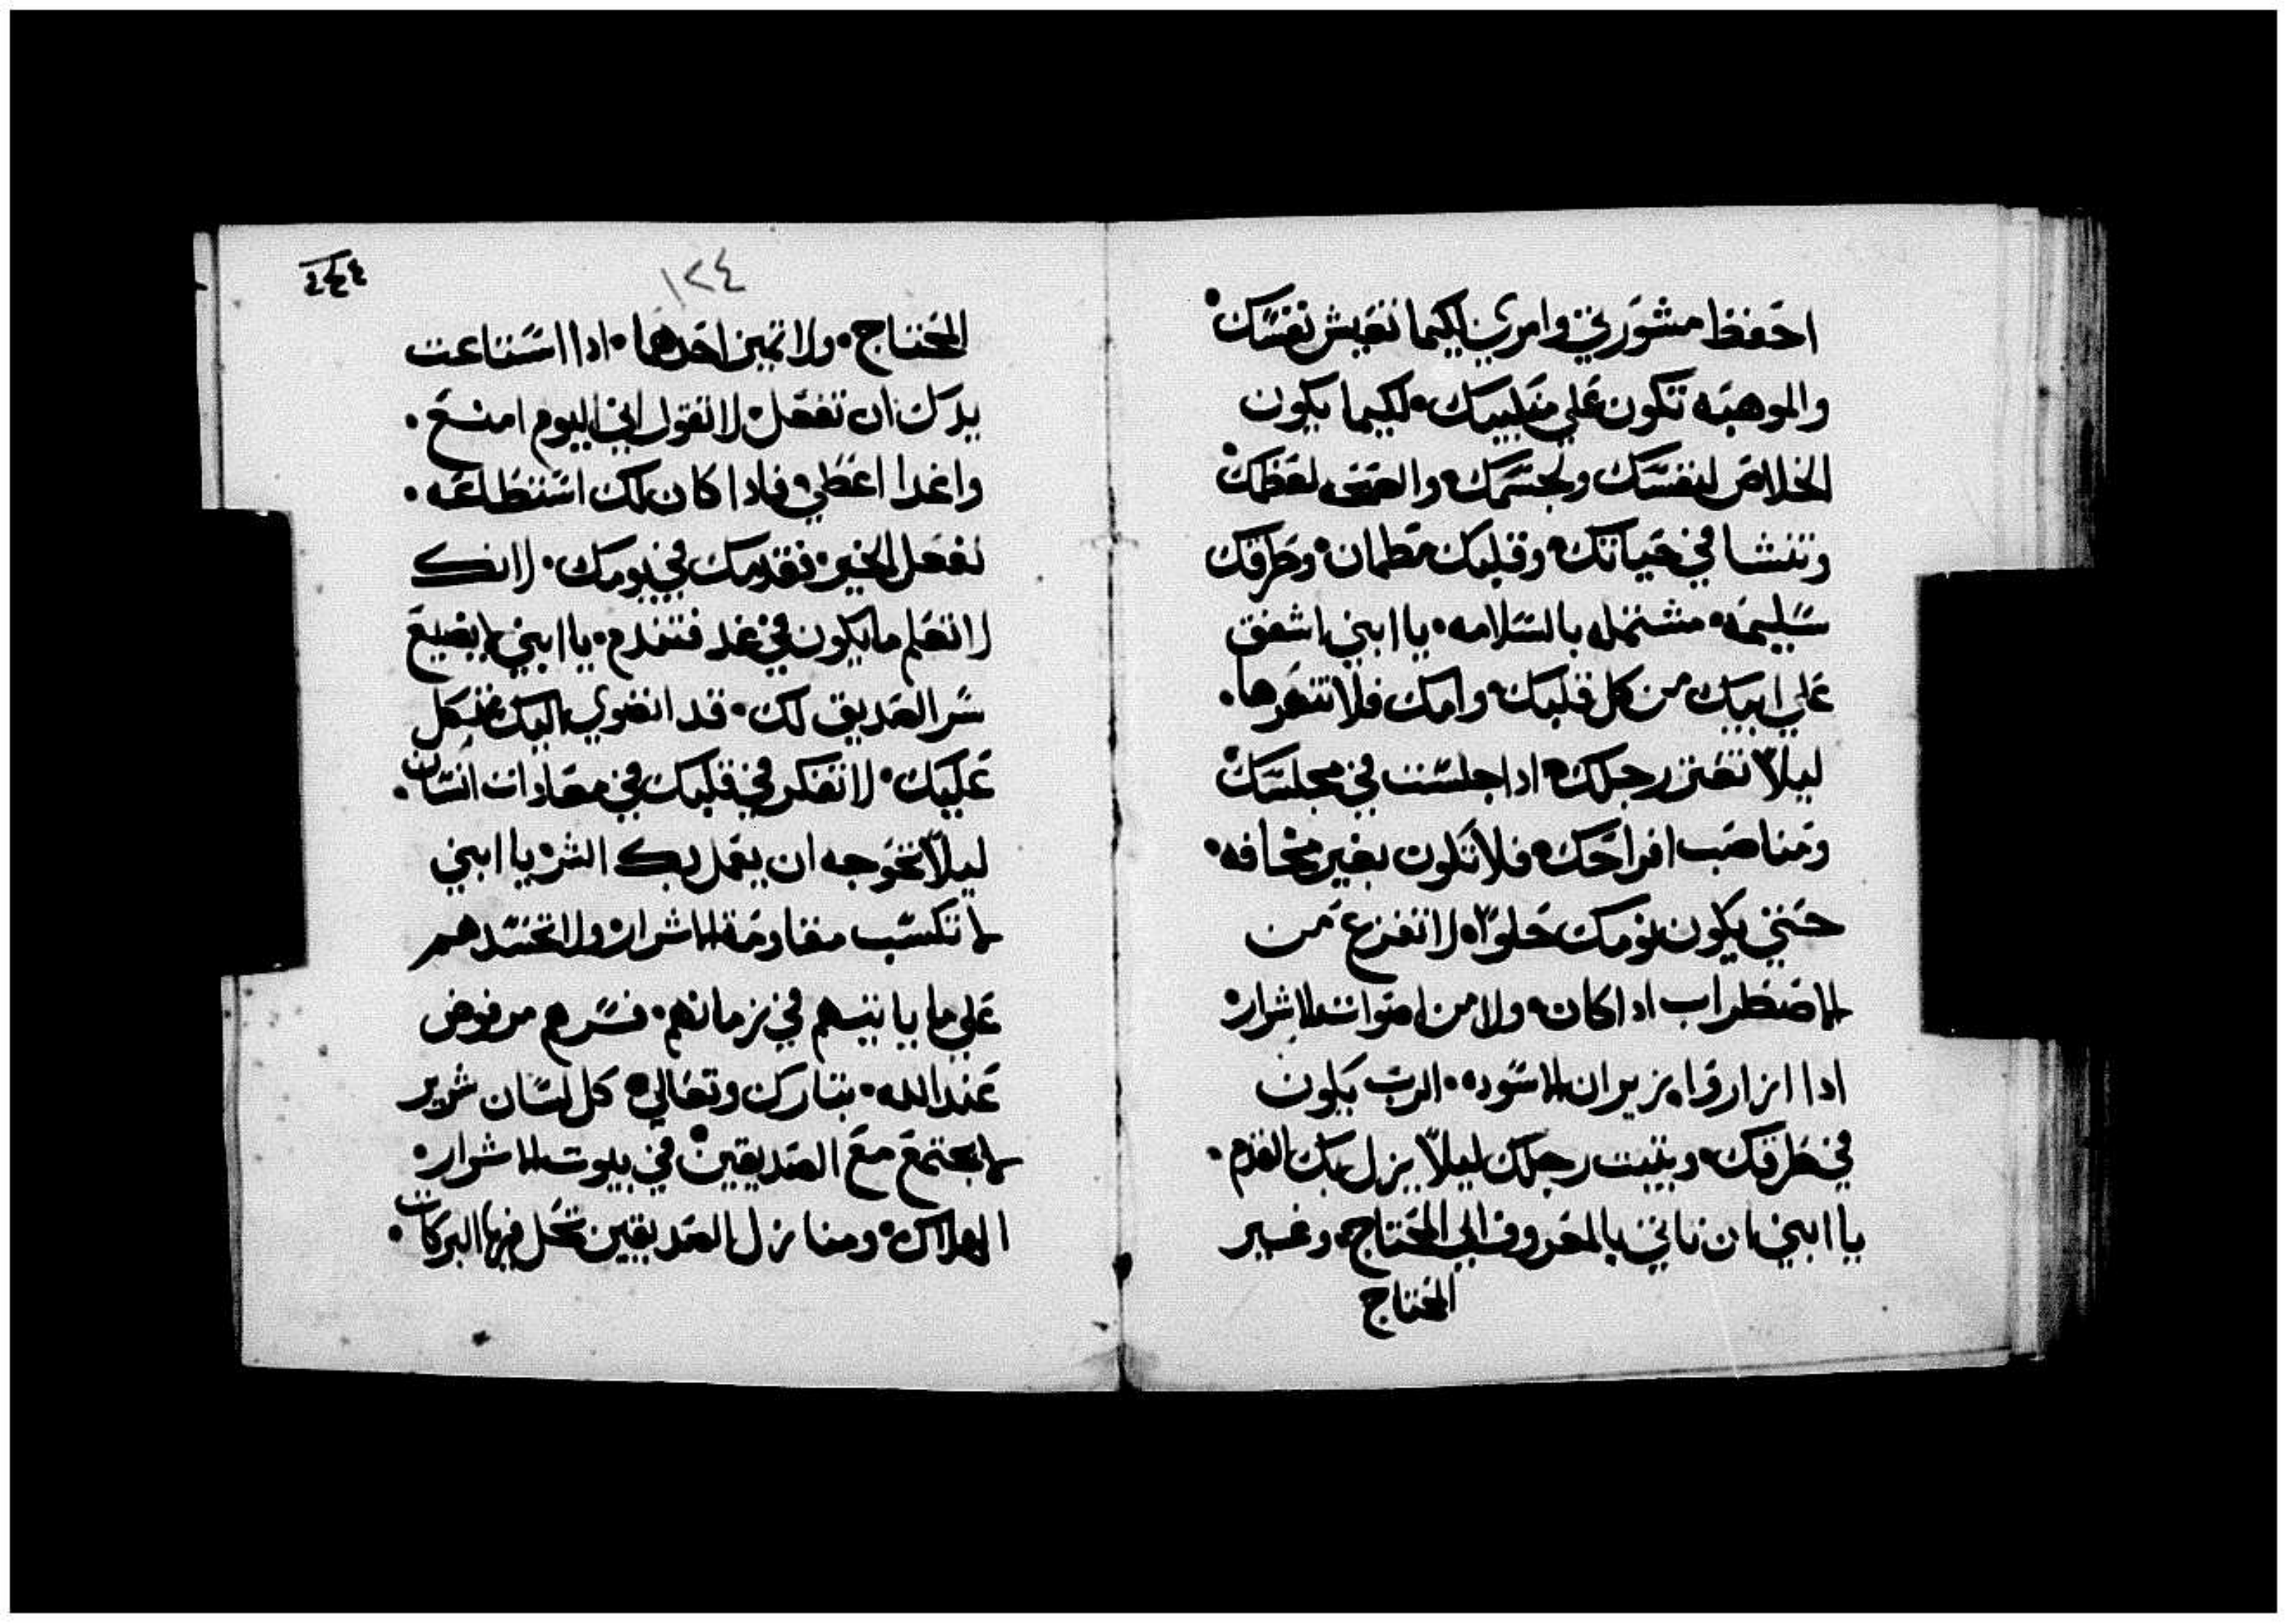 احفظ مشورتي وامري لكيما تعيش نفسك•
والموهبه تكون علي منكبيك• لكيما يكون
الخلاص لنفسك ولجسمك• والصحه لعظمك•
وتنشا في حياتك• وقلبك مطمان• وطرقك
سليمه• مشتمله بالسلامه• يا ابني اشفق
علي ابيك من كل قلبك• وامك فلا تنهرها•
ليلا تعتر رجلك• ادا جلست في مجلسك•
ومناصب افراحك• فلا تكون بغير مخافه•
حتي يكون نومك حلوا• لا تفزع من
الاضطراب ادا كان• ولا من اصوات الاشرار•
ادا ازاروا يزيران الاسود• الرب يكون
في طرقك• ويتبت رجلك ليلا يزل بك القدم•
يا ابني ان تاتي بالمعروف الي المحتاج• وغير
المحتاج
١٢٤
المحتاج• ولا تميز احدهما• ادا استاعت
يدك ان تفعل• لا تقول اني اليوم امنع•
واغدا اعطي• فادا كان لك استطاعه•
تفعل الخير• فقدمك في يومك• لانك
لا تعلم ما يكون في غد فتندم• يا ابني لا يضيع
سر الصديق لك• قد انضوي اليك متكل
عليك• لا تفكر في قلبك في معادات انسان•
ليلا تخوجه ان يعمل بك الشر• يا ابني
لا تكسب مقاومة الاشرار• ولا تحسدهم
علي ما ياتيهم في زمانهم• فسرهم مرفوض
عند الله• تبارك وتعالي• كل لسان شرير
لا يجتمع مع الصديقين• في بيوت الاشرار•
الهلاك• ومنازل الصديقين تحل فيها البركات•